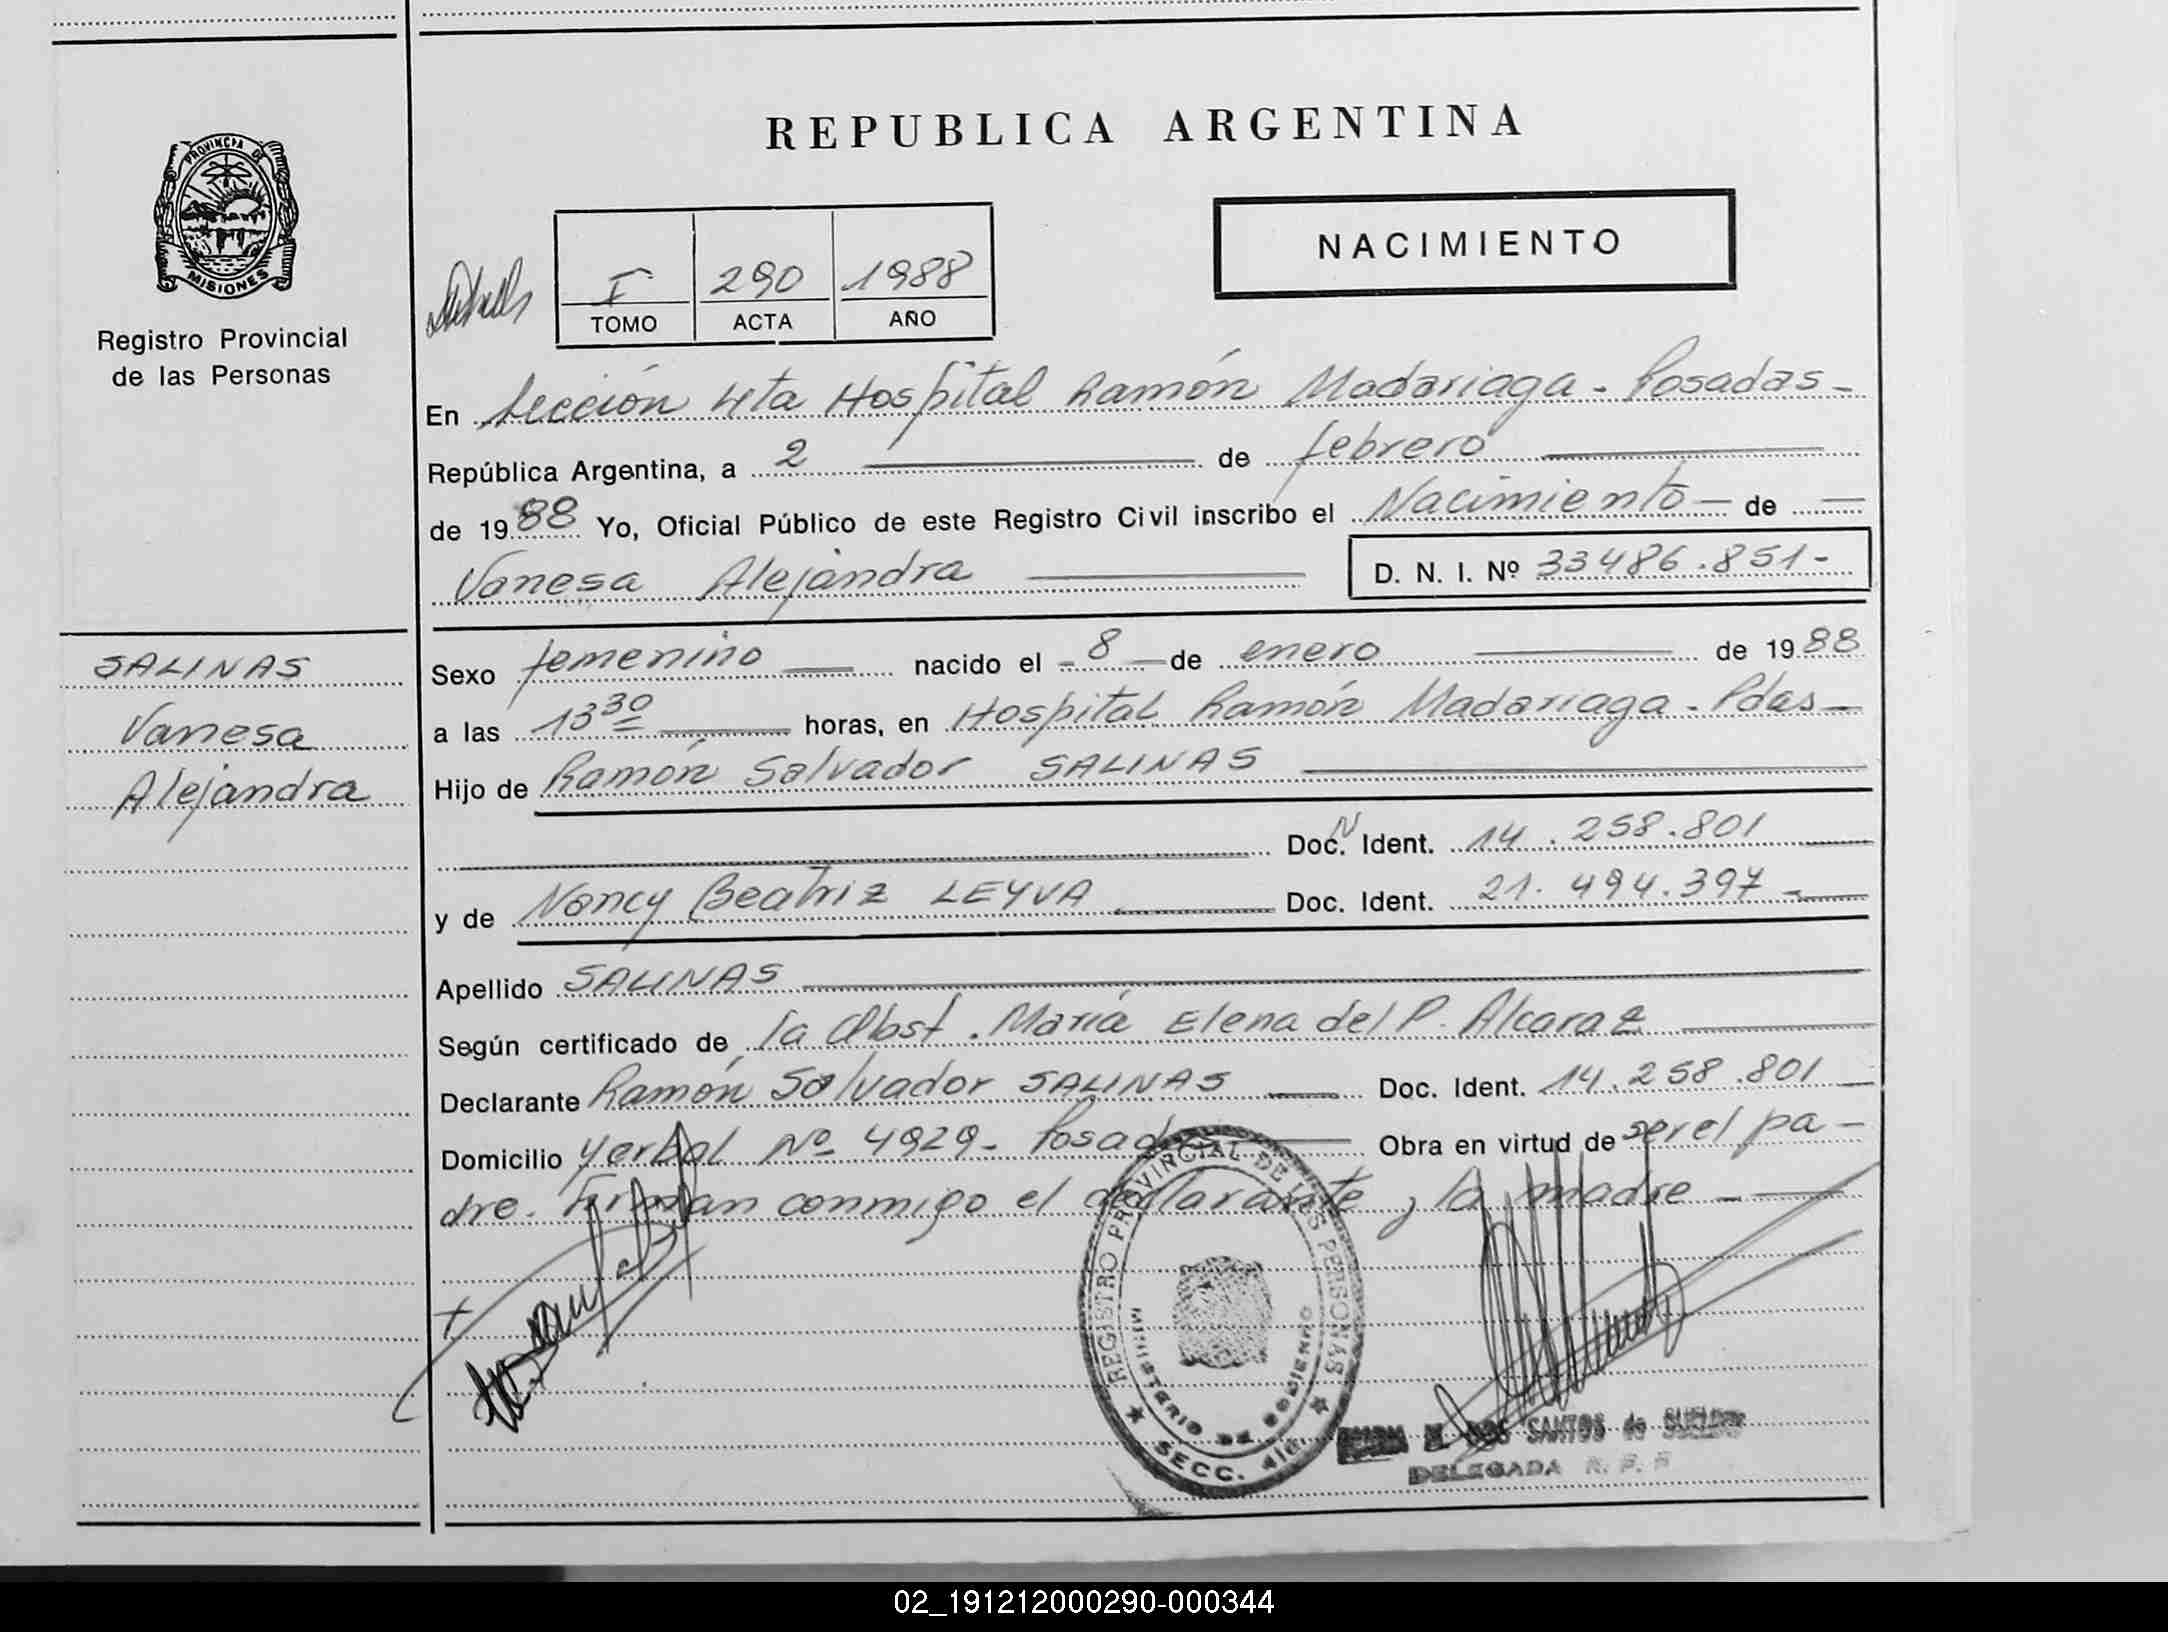 REPUBLICA ARGENTINA
PROVINCIA DE
MISIONES
Registro Provincial
de las Personas
NACIMIENTO
I 290 1988
TOMO ACTA AÑO
En Sección 4ta Hospital Ramón Madariaga - Posadas -
República Argentina, a 2 de febrero
de 1988 Yo, Oficial Público de este Registro Civil inscribo el Nacimiento de
Vanesa Alejandra D. N. I. Nº 33486.851-
SALINAS
Vanesa
Alejandra
Sexo femenino nacido el 8 de enero de 1988
a las 13 30 horas, en Hospital Ramón Madariaga - Pdas -
Hijo de Ramón Salvador SALINAS
Doc. N Ident. 14.258.801
y de Nancy Beatriz LEYVA Doc. Ident. 21.494.397 -
Apellido SALINAS
Según certificado de la Obst. María Elena del P. Alcaraz
Declarante Ramón Salvador SALINAS Doc. Ident. 14.258.801
Domicilio Yerbal Nº 4929 - Posadas Obra en virtud de ser el pa-
dre. Firman conmigo el declarante y la madre -
REGISTRO PROVINCIAL DE LAS PERSONAS
MINISTERIO DE GOBIERNO
SECC. 4ta.
DOS SANTOS de
DELEGADA R. P. P
02_191212000290-000344